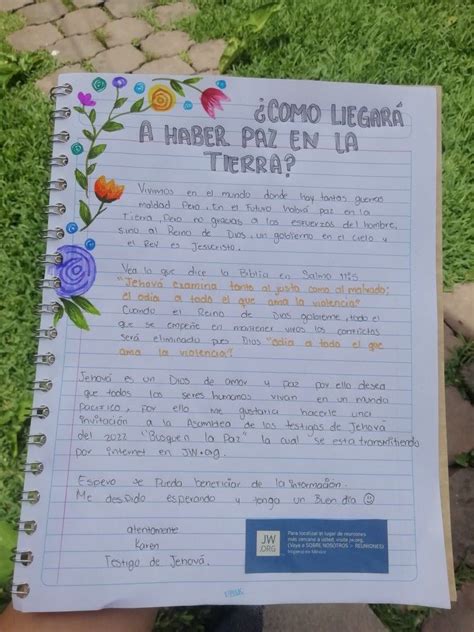 ¿COMO LlEGARÁ
A HABER PAZ EN LA
TIERRA?
Vivimos en el mundo donde hay tantas guerras
maldad Pero, En el Futuro habrá paz en la
Tierra, Pero no gracias a los esfuerzos del hombre,
sino al Reino de Dios, un gobierno en el cielo y
el Rey es Jesucristo.
Vea lo que dice la Biblia en Salmo 11:5
"Jehová examina tanto al justo como al malvado;
él odia a todo el que ama la violencia"
Cuando el Reino de Dios gobierne, todo el
que se empeñe en mantener vivos los conflictos
será eliminado pues Dios "odia a todo el que
ama la violencia".
Jehová es un Dios de amor y paz por ello desea
que todos los seres humanos vivan en un mundo
Pacifico, por ello me gustaria hacerle una
invitación a la Asamblea de los testigos de Jehová
del 2022 "Busquen la Paz" la cual se esta transmitiendo
por internet en JW.org.
Espero se Pueda beneficiar de la información.
Me despido esperando y tenga un Buen día
atentamente
Karen
Testigo de Jehová.
JW
.ORG
Para localizar el lugar de reuniones
más cercano a usted, visite jw.org.
(Vaya a SOBRE NOSOTROS > REUNIONES)
Impreso en México